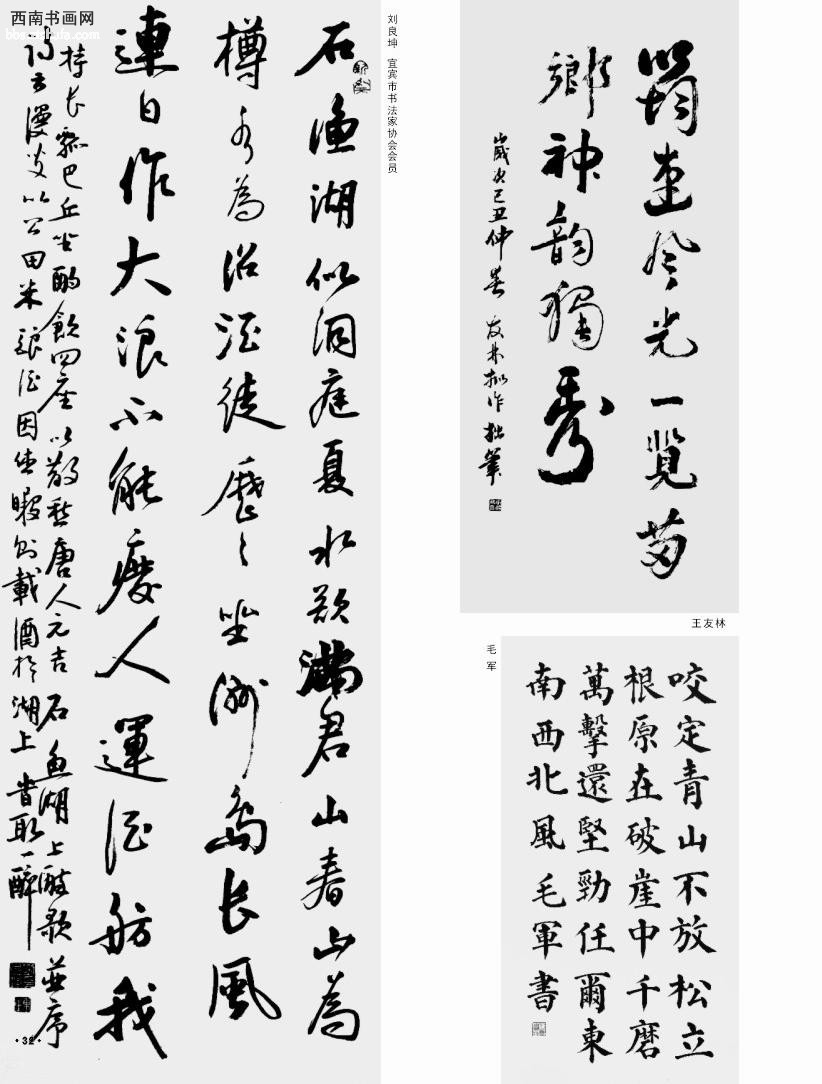 西南书画网
bbs.dxshufa.com
石漁湖似洞庭夏水欲滿君山春山為
樽水為沼酒徒歷〻坐洲島長風
連日作大浪不能廢人運酒舫我
持長瓢巴丘坐酌飲四座以散愁唐人元吉石魚湖上醉歌並序
詩云漫叟以公田米釀酒因休暇則載酒於湖上時取一醉
·32·
刘良坤 宜宾市书法家协会会员
筠連風光一覽苗
鄉神韵獨秀
歲次己丑仲春 友林拟作 拙筆
王友林
毛军
咬定青山不放松立
根原在破崖中千磨
萬擊還堅勁任爾東
南西北風毛軍書